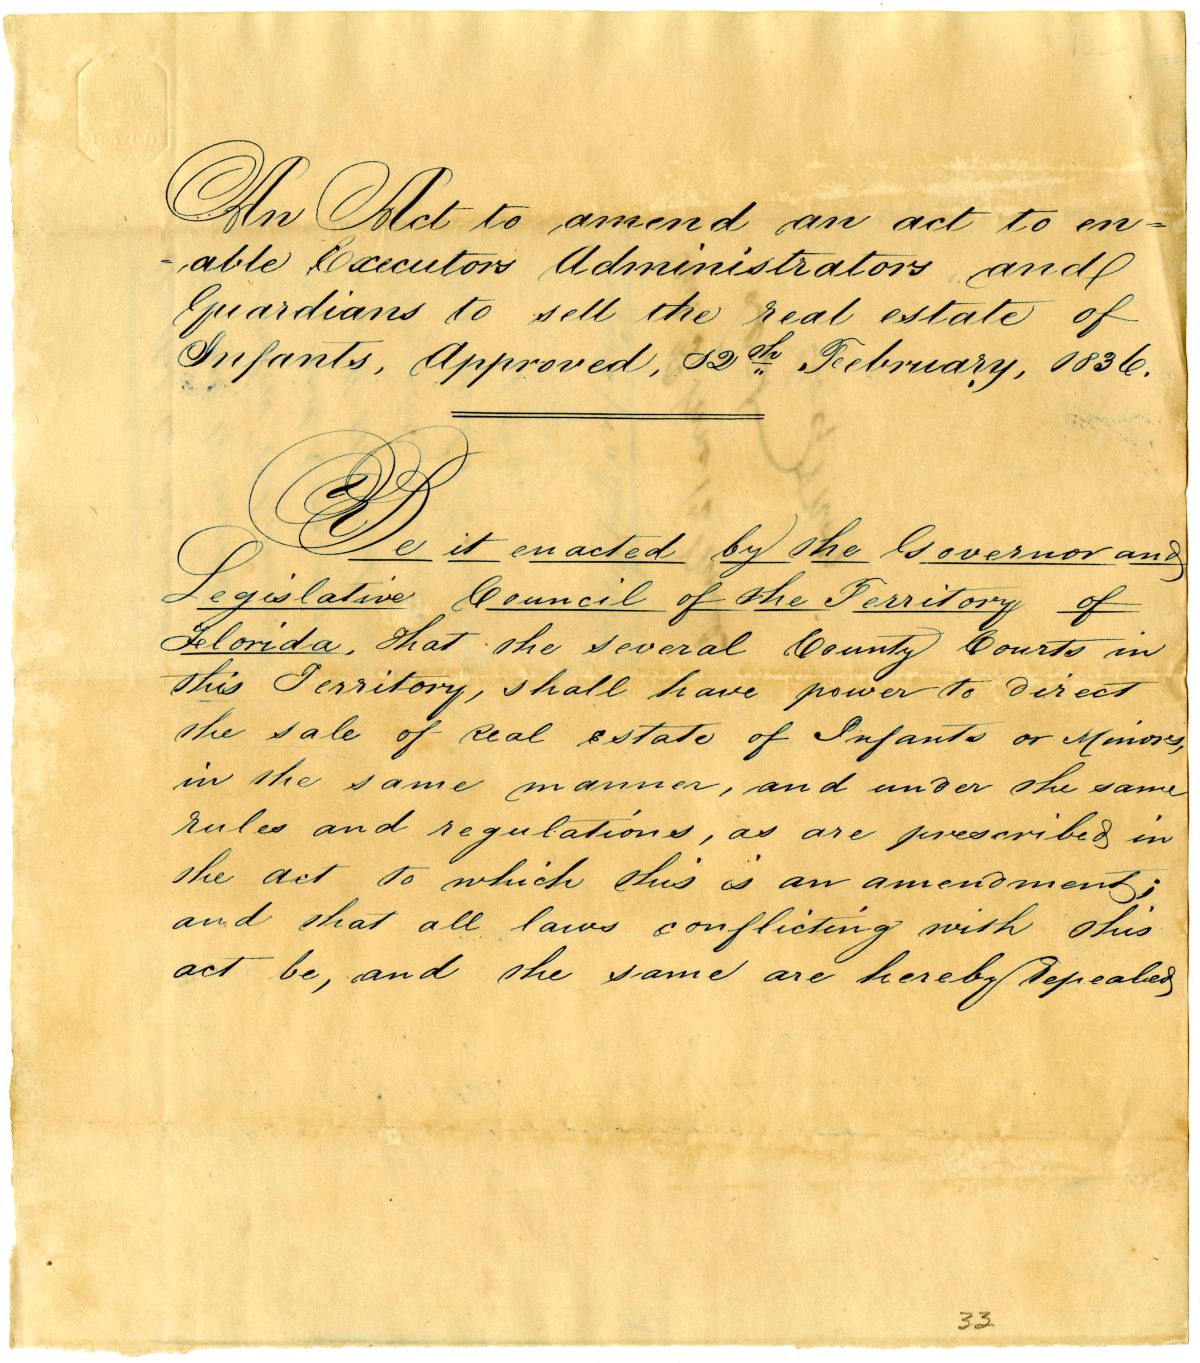 An Act to amend an act to en=
-able Executors Administrators and
Guardians to sell the real estate of
Infants, Approved, 12th February, 1836.
Be it enacted by the Governor and
Legislative Council of the Territory of
Florida, That the several County Courts in
this Territory, shall have power to direct
the sale of real estate of Infants or Minors,
in the same manner, and under the same
rules and regulations, as are prescribed in
the act to which this is an amendment;
and that all laws conflicting with this
act be, and the same are hereby repealed
33